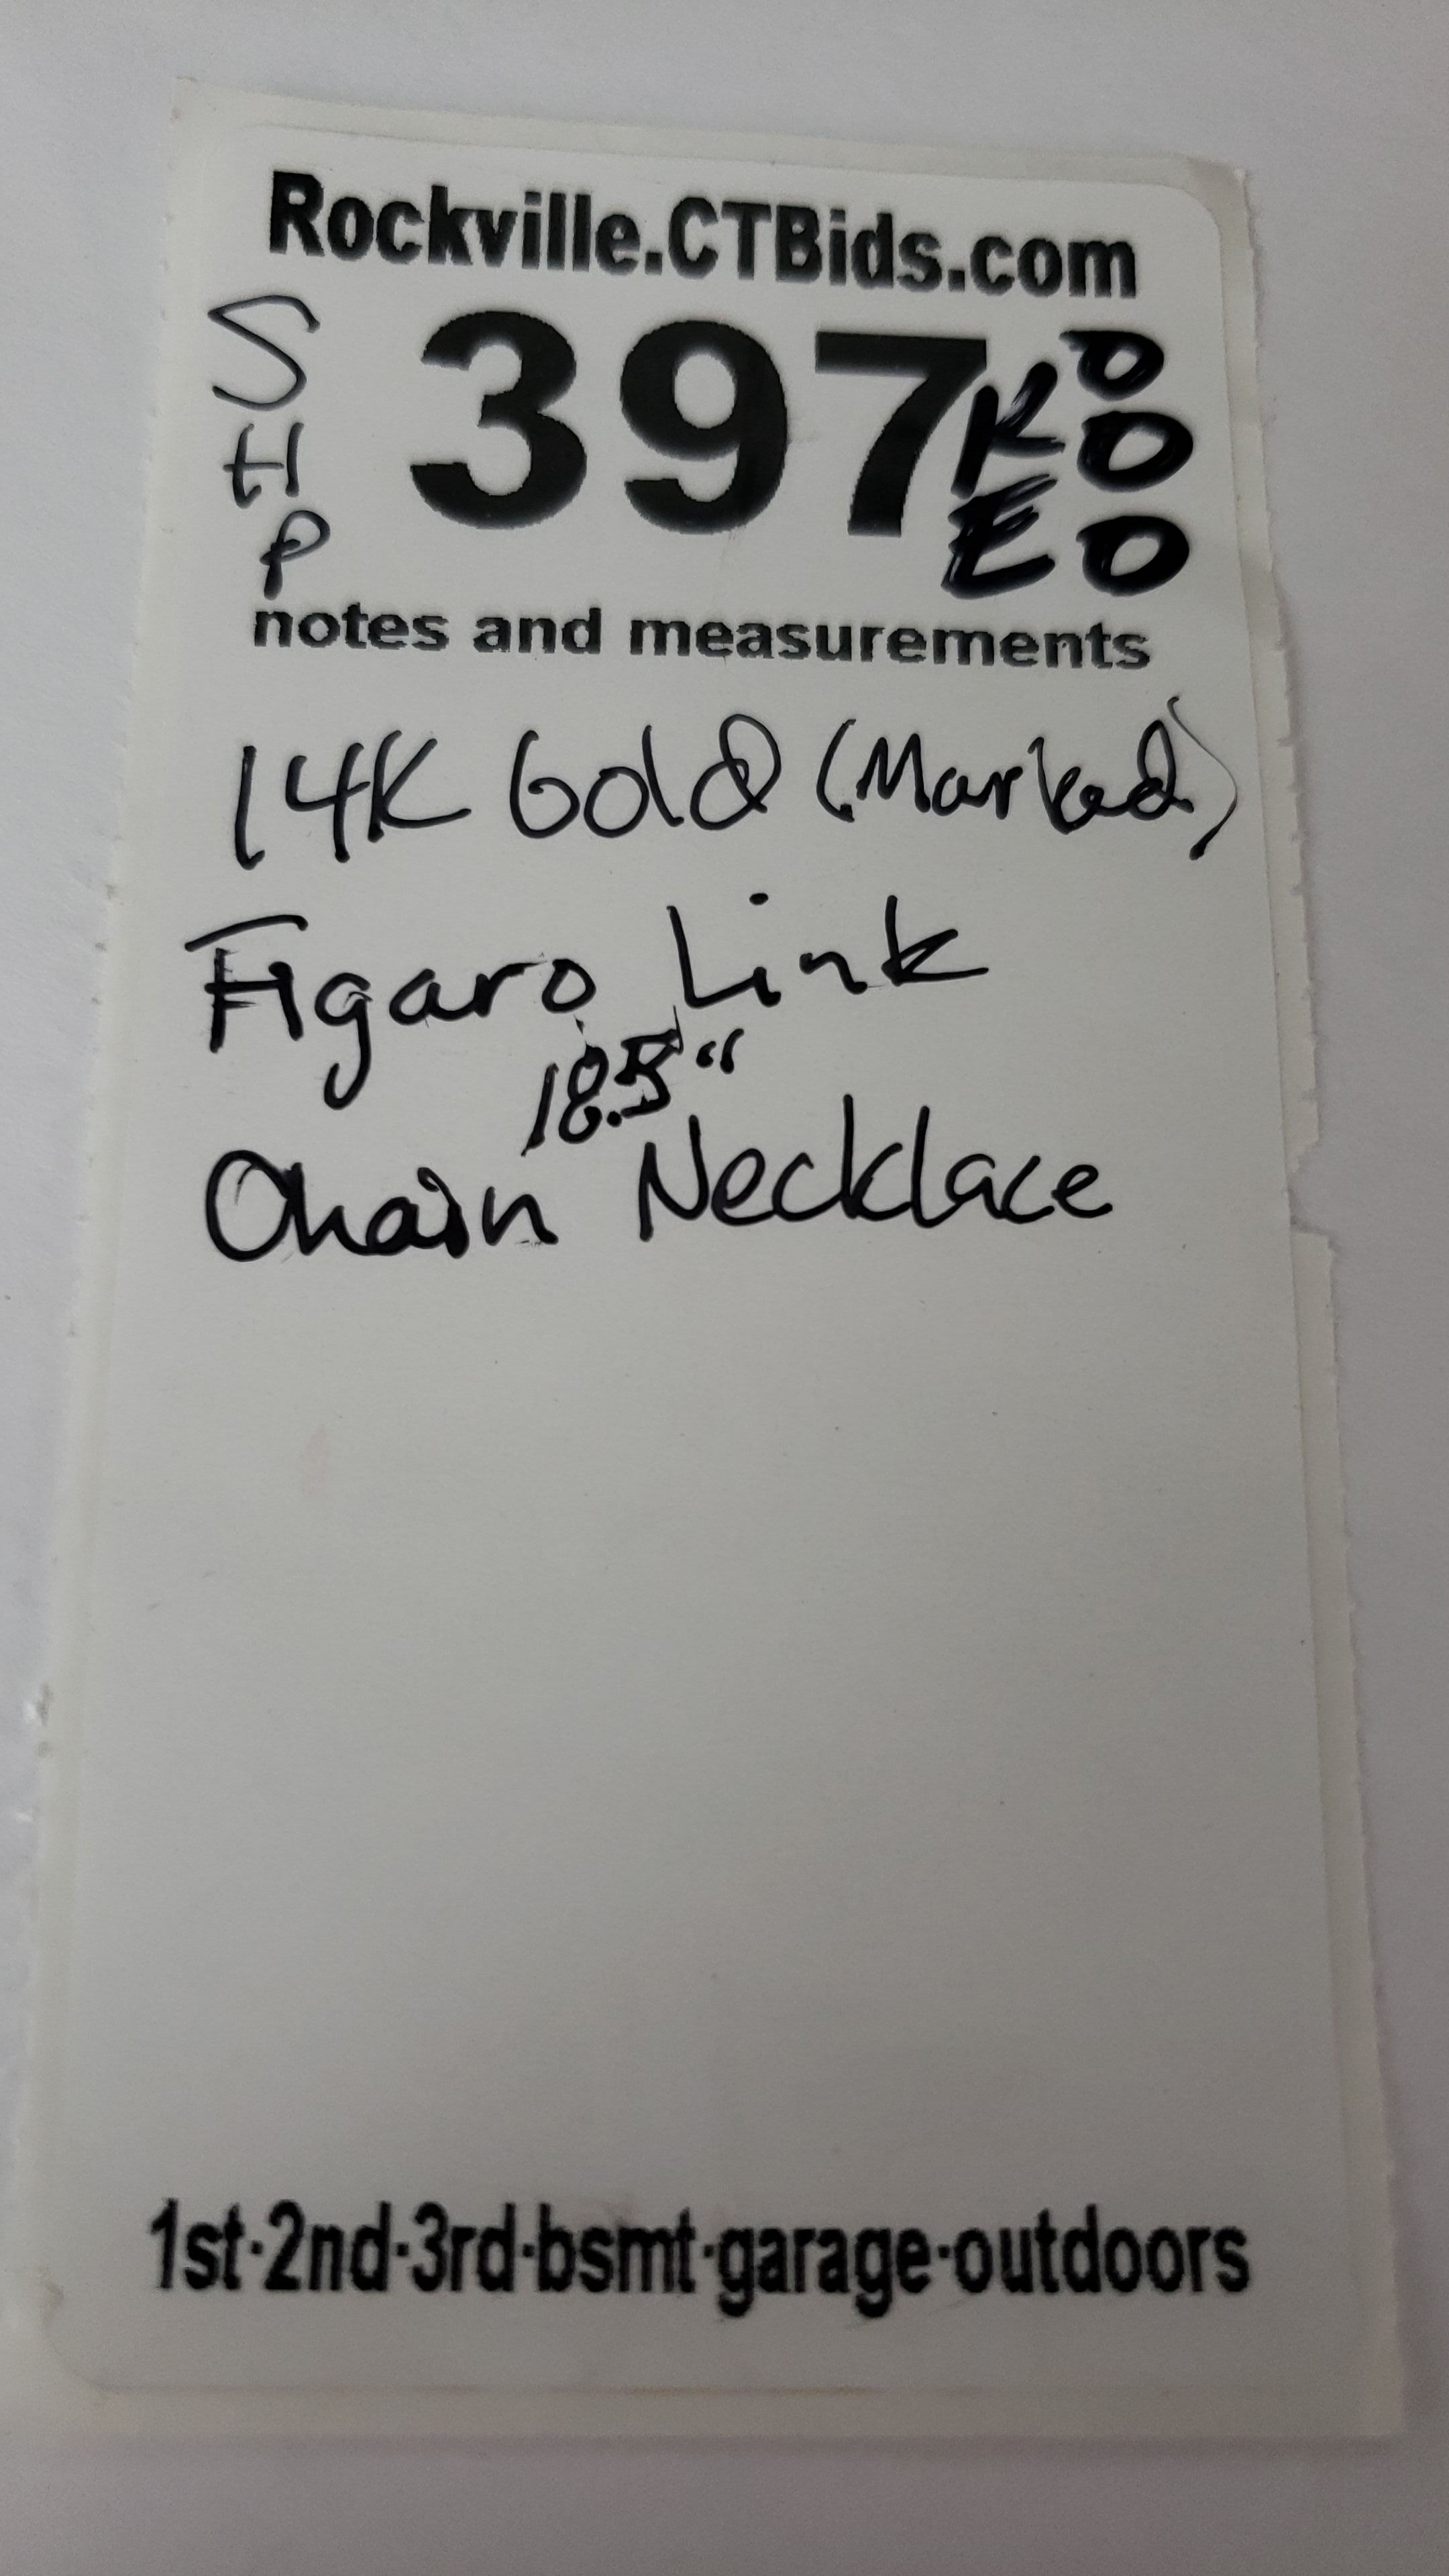 Rockville.CTBids.com
S
H
P
397
O
KO
EO
notes and measurements
14K Gold (Marked)
Figaro Link
18.5"
Chain Necklace
1st·2nd·3rd·bsmt·garage·outdoors